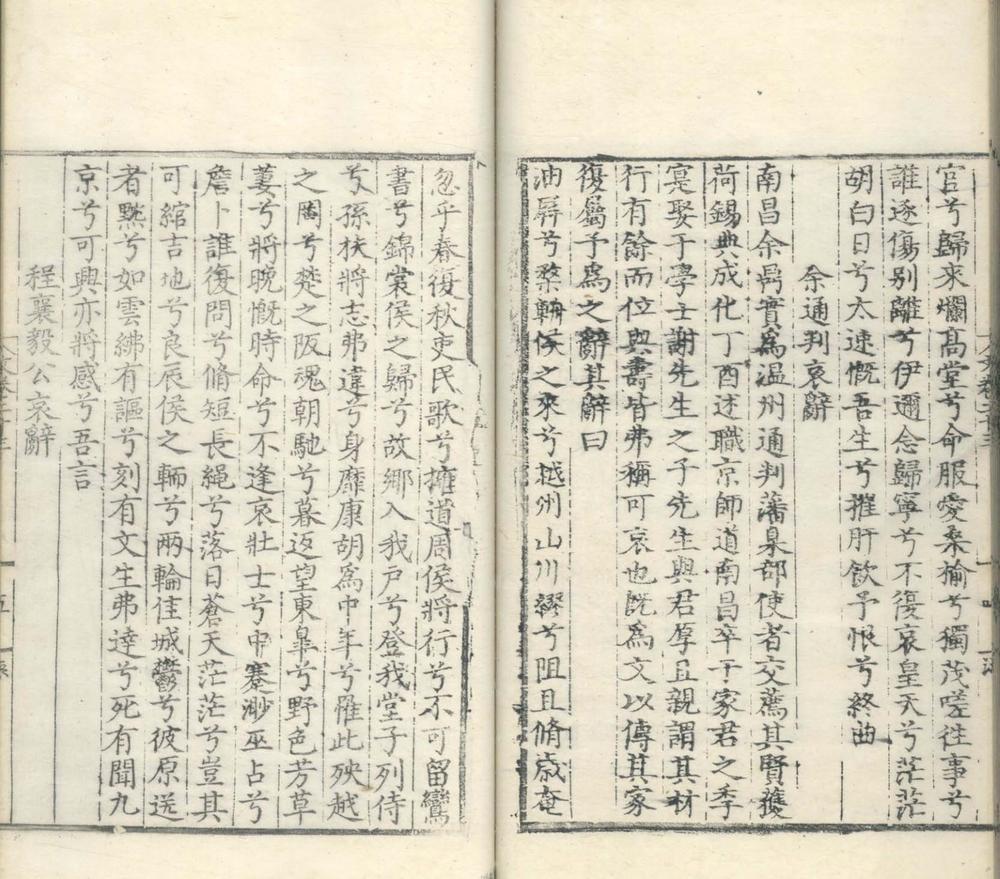 官兮歸來爛髙堂兮命服愛桑榆兮獨茂嗟徃事兮
誰逐傷别離兮伊邇念歸寧兮不復哀皇天兮茫茫
胡白日兮太速慨吾生兮摧肝飲予恨兮終曲
余通判哀辭
南昌余鼎實為温州通判藩臬部使者交薦其賢獲
荷錫典成化丁酉述職京師道南昌卒于家君之季
寔娶于學士謝先生之子先生與君厚且親謂其材
行有餘而位與壽皆弗稱可哀也既為文以傳其家
復屬予為之辭其辭曰
油屏兮棨輈侯之來兮越州山川繆兮阻且脩歳奄
忽乎春復秋吏民歌兮擁道周侯將行兮不可留鸞
書兮錦裳侯之歸兮故鄉入我戸兮登我堂子列侍
兮孫扶將志弗違兮身靡康胡為中年兮罹此殃越
之閩兮楚之阪魂朝馳兮暮返望東皐兮野色芳草
萋兮將晩慨時命兮不逢哀壯士兮中蹇渺巫占兮
詹卜誰復問兮脩短長繩兮落日蒼天茫茫兮豈其
可綰吉地兮良辰侯之輀兮兩輪佳城鬱兮彼原送
者黙兮如雲紼有謳兮刻有文生弗達兮死有聞九
京兮可興亦將感兮吾言
程襄毅公哀辭